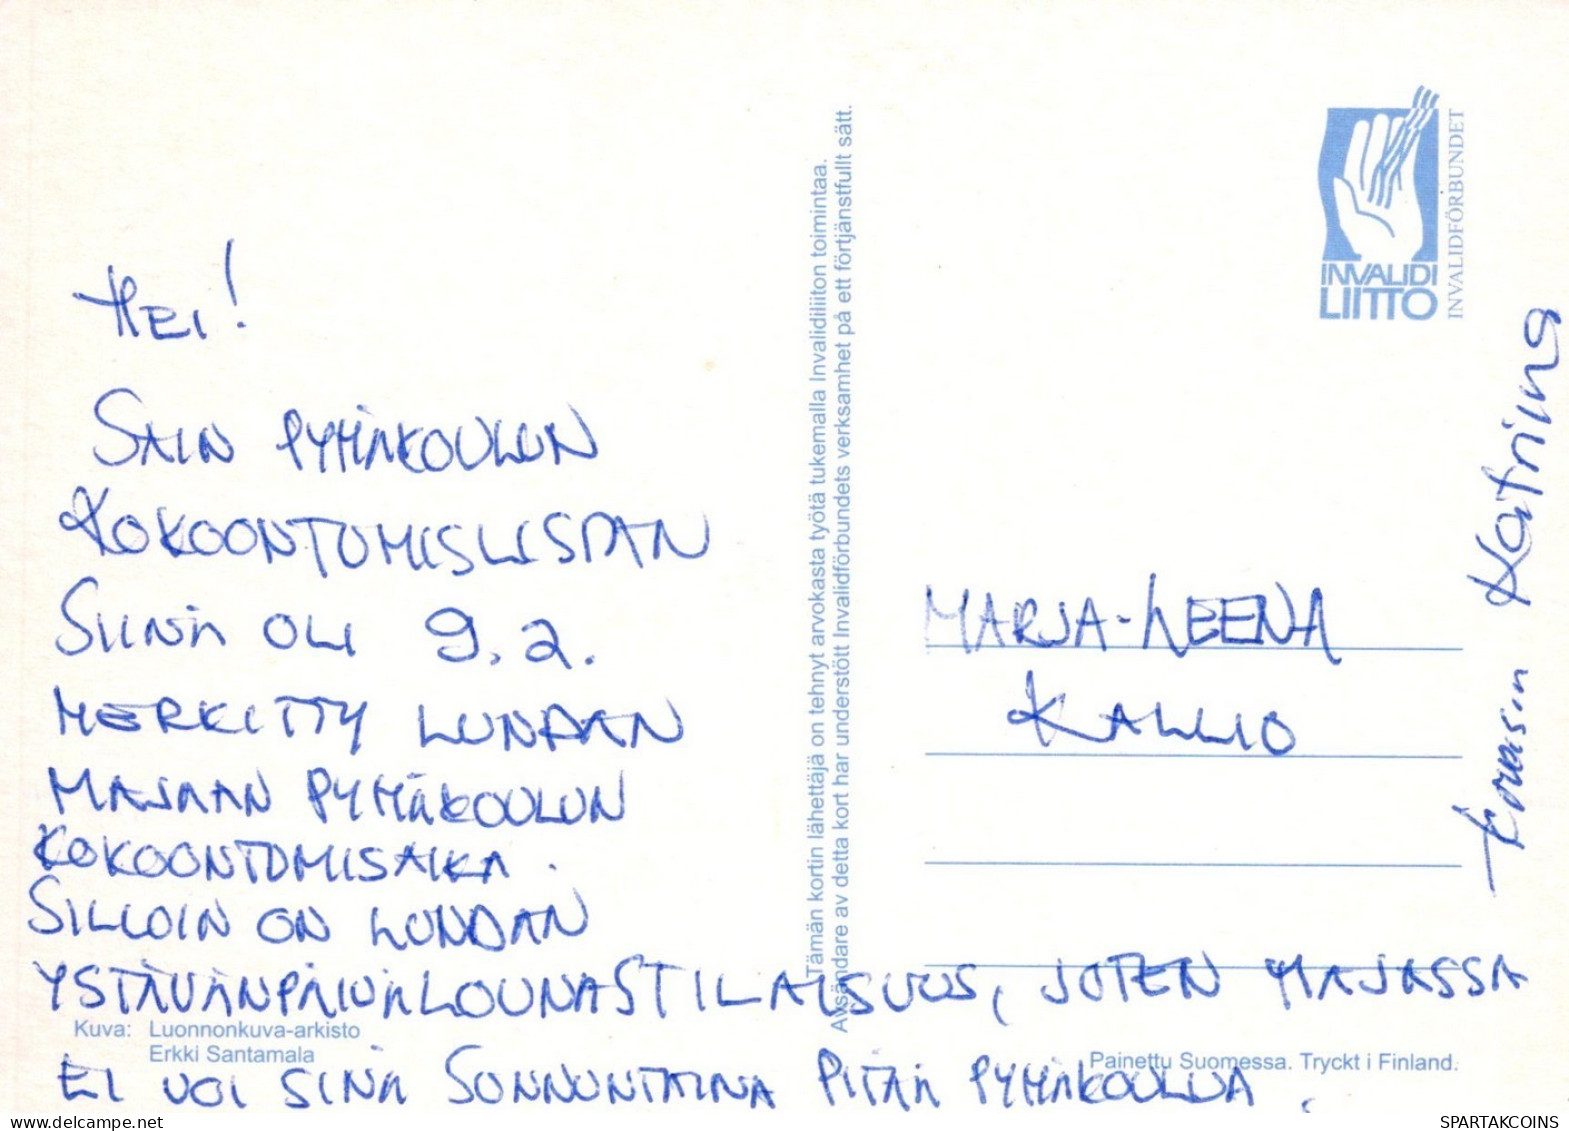 HEI!
SAIN PYHÄKOULUN
KOKOONTUMISLISTAN
SIINÄ OLI 9.2.
MERKITTY LUNDAN
MAJAAN PYHÄKOULUN
KOKOONTUMISAIKA.
SILLOIN ON LUNDAN
YSTÄVÄNPÄIVÄLOUNASTILAISUUS, JOTEN MAJASSA
EI VOI SINÄ SUNNUNTAINA PITÄÄ PYHÄKOULUA.
Kuva: Luonnonkuva-arkisto
Erkki Santamala
Tämän kortin lähettäjä on tehnyt arvokasta työtä tukemalla Invalidiliiton toimintaa.
Avsändare av detta kort har understött Invalidförbundets verksamhet på ett förtjänstfullt sätt.
INVALIDI
LIITTO
INVALIDFÖRBUNDET
MARJA-LEENA
KALLIO
Katriina
Painettu Suomessa. Tryckt i Finland.
SPARTAKCOINS